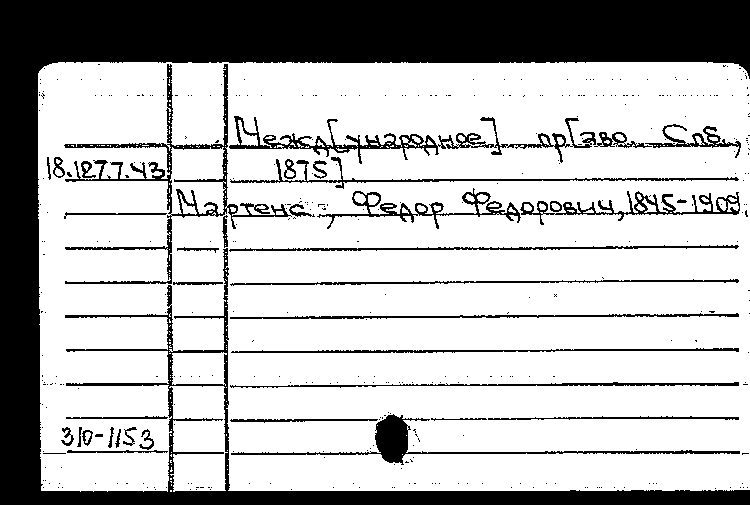 Межд[ународное] пр[аво. Спб.,
18.127.7.43 1875].
Мартенс, Федор Федорович, 1845-1909.
310-1153